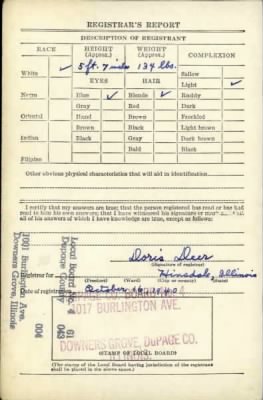 REGISTRAR'S REPORT
DESCRIPTION OF REGISTRANT
RACE HEIGHT (Approx.) WEIGHT (Approx.) COMPLEXION
White ✓ 5 ft. 7 ins 134 lbs. Sallow
EYES HAIR Light ✓
Negro Blue ✓ Blonde ✓ Ruddy
Gray Red Dark
Oriental Hazel Brown Freckled
Brown Black Light brown
Indian Black Gray Dark brown
Bald Black
Filipino
Other obvious physical characteristics that will aid in identification
I certify that my answers are true; that the person registered has read or has had
read to him his own answers; that I have witnessed his signature or mark and that
all of his answers of which I have knowledge are true, except as follows:
Doris Deer
(Signature of registrar)
Registrar for Hinsdale, Illinois
(Precinct) (Ward) (City or county) (State)
Date of registration October 16 1940
4
1017 BURLINGTON AVE.
DOWNERS GROVE, DuPAGE CO.
ILLINOIS.
(STAMP OF LOCAL BOARD)
(The stamp of the Local Board having jurisdiction of the registrant
shall be placed in the above space.)
Local Board No. 4 61
Dupage County 043
1001 Burlington Ave. 004
Downers Grove, Illinois